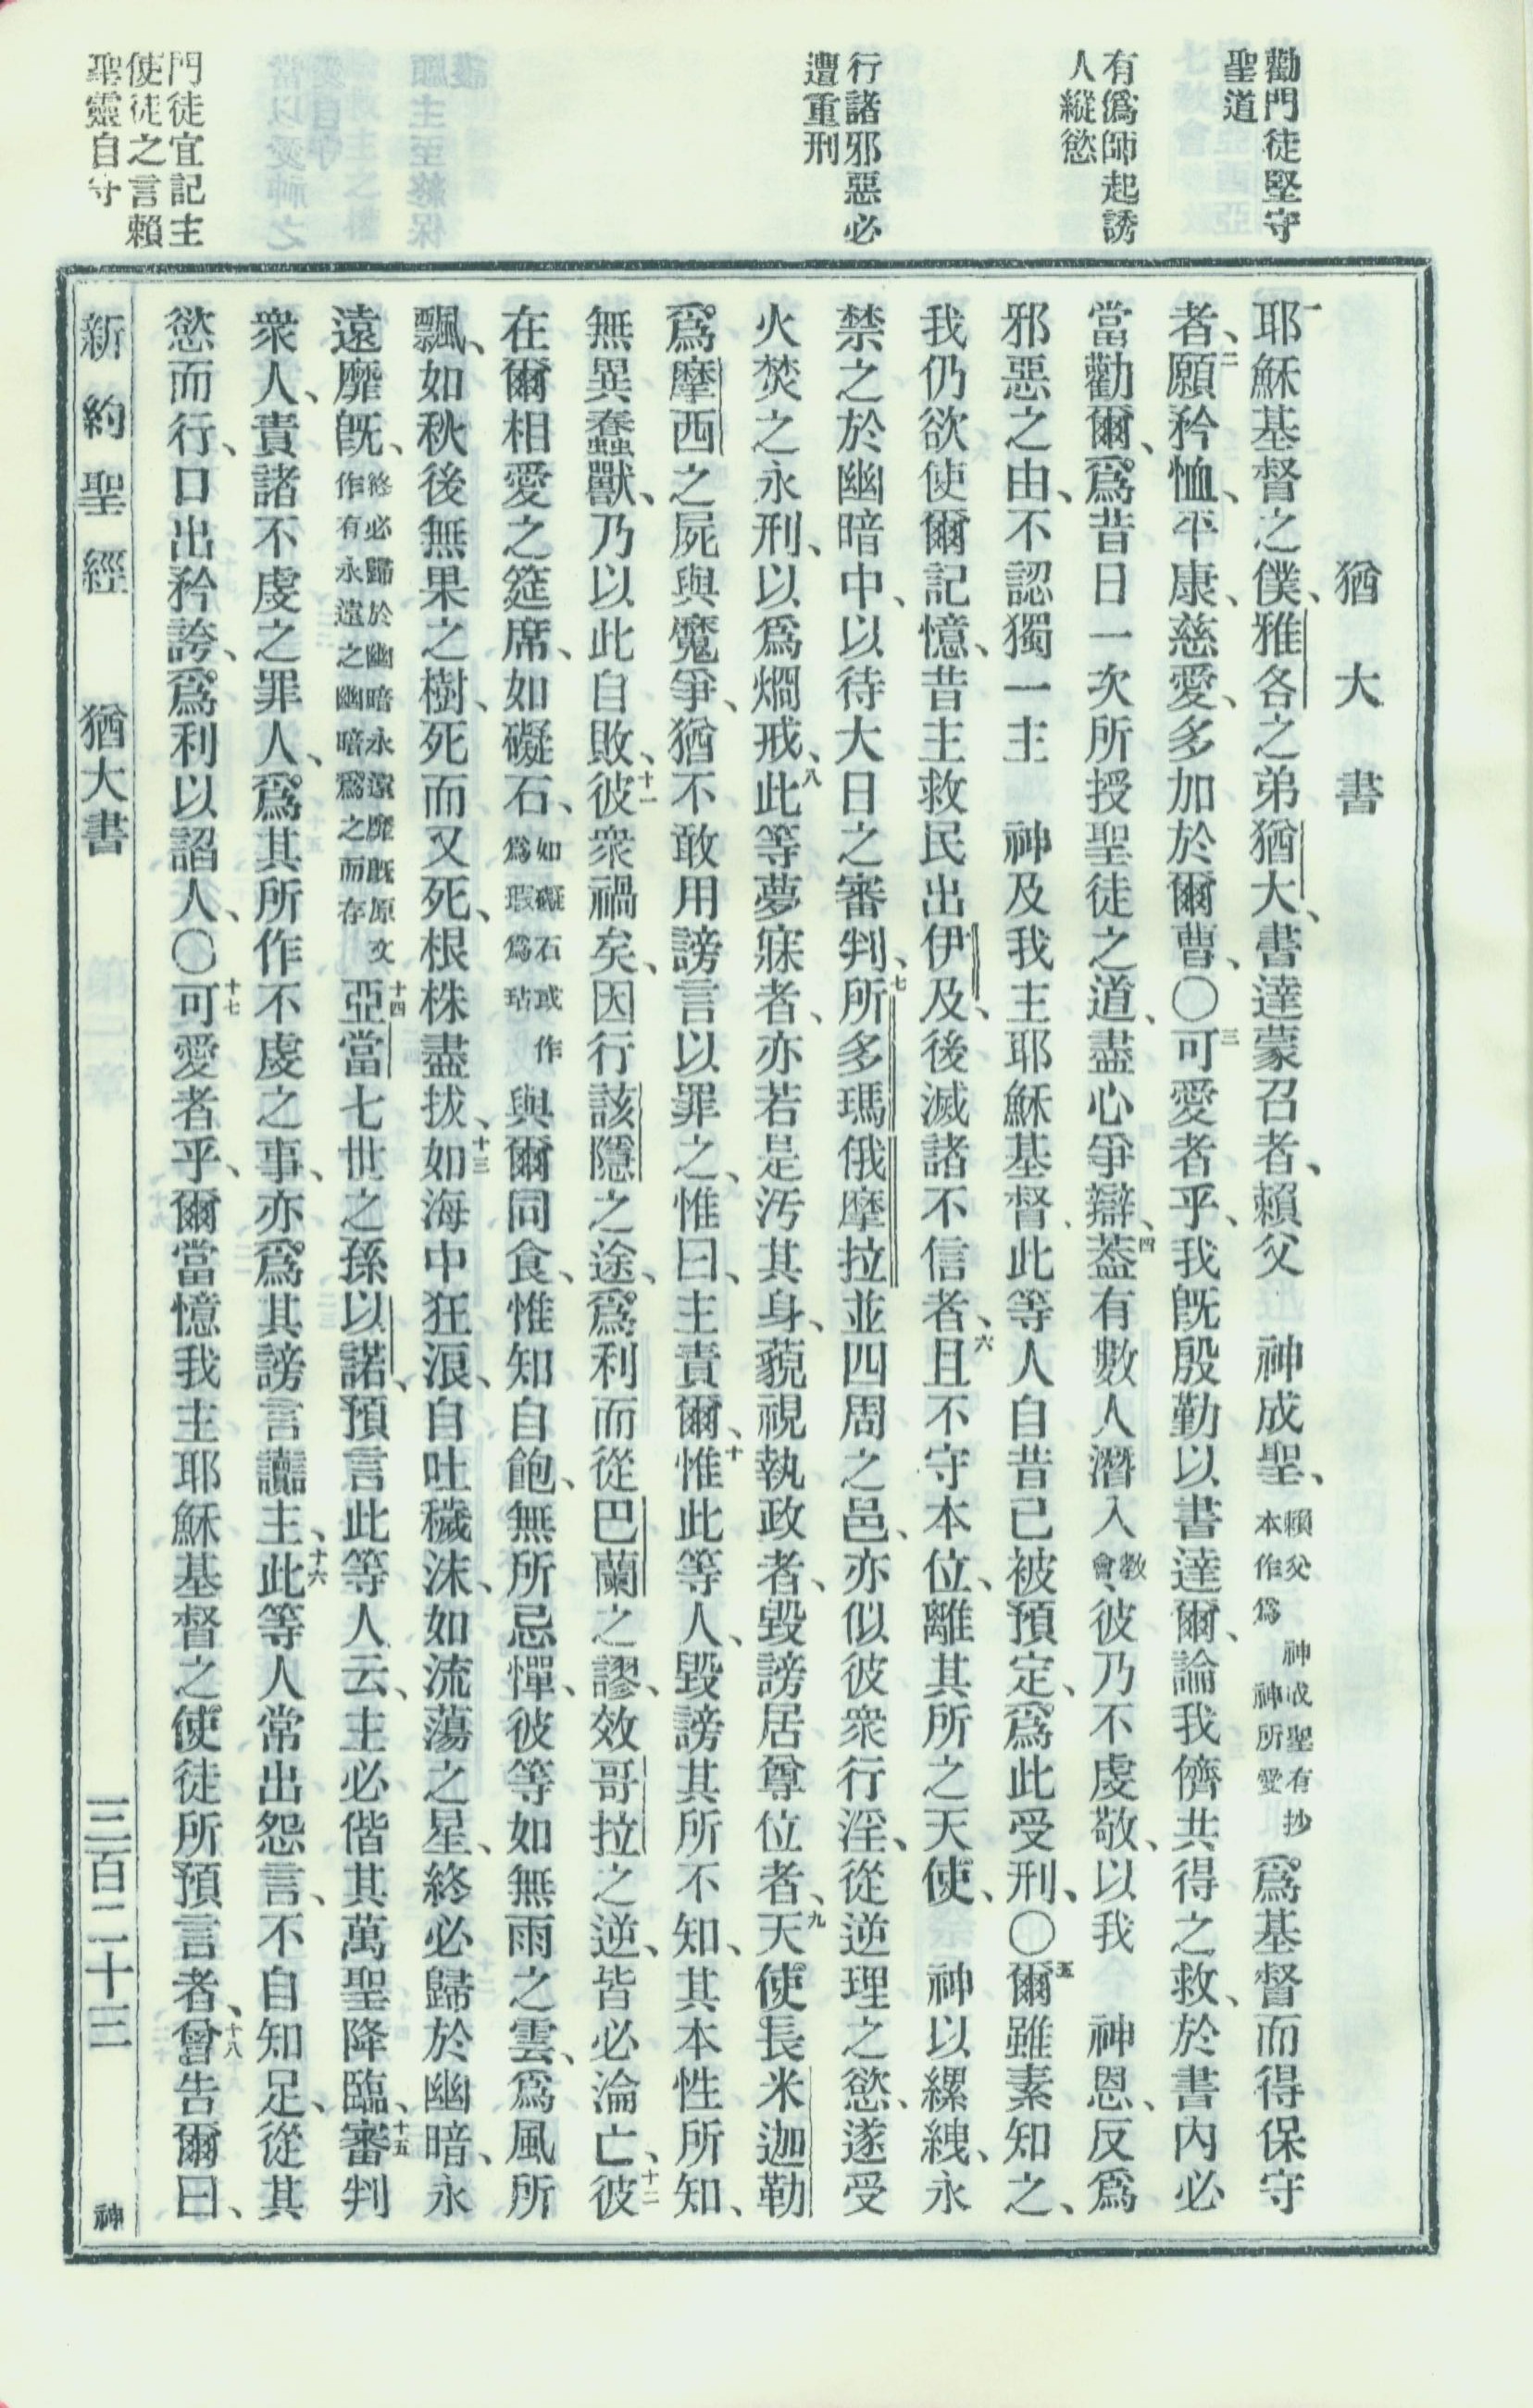 勸門徒堅守
聖道
有僞師起誘
人縱慾
行諸邪惡必
遭重刑
門徒宜記主
使徒之言賴
聖靈自守
猶大書
一耶穌基督之僕、雅各之弟猶大、書達蒙召者、賴父　神成聖、賴父　神成聖有抄本作爲　神所愛爲基督而得保守
者、二願矜恤、平康、慈愛、多加於爾曹、〇三可愛者乎、我旣殷勤以書達爾、論我儕共得之救、於書內必
當勸爾、爲昔日一次所授聖徒之道、盡心爭辯、四葢有數人潛入教會、彼乃不虔敬、以我　神恩、反爲
邪惡之由、不認獨一主　神及我主耶穌基督、此等人自昔已被預定、爲此受刑、〇五爾雖素知之、
我仍欲使爾記憶、昔主救民出伊及、後滅諸不信者、六且不守本位、離其所之天使、　神以縲絏、永
禁之於幽暗中、以待大日之審判、七所多瑪俄摩拉並四周之邑、亦似彼衆行淫、從逆理之慾、遂受
火焚之永刑、以爲烱戒、八此等夢寐者、亦若是汚其身、藐視執政者、毀謗居尊位者、九天使長米迦勒
爲摩西之屍與魔爭、猶不敢用謗言以罪之、惟曰、主責爾、十惟此等人、毀謗其所不知、其本性所知、
無異蠢獸、乃以此自敗、十一彼衆禍矣、因行該隱之途、爲利而從巴蘭之謬、效哥拉之逆、皆必淪亡、十二彼
在爾相愛之筵席、如礙石、如礙石或作爲瑕爲玷與爾同食、惟知自飽、無所忌憚、彼等如無雨之雲、爲風所
飄、如秋後無果之樹、死而又死、根株盡拔、十三如海中狂浪、自吐穢沫、如流蕩之星、終必歸於幽暗、永
遠靡旣、終必歸於幽暗永遠靡旣原文作有永遠之幽暗爲之而存十四亞當七世之孫以諾、預言此等人云、主必偕其萬聖降臨、十五審判
衆人、責諸不虔之罪人、爲其所作不虔之事、亦爲其謗言讟主、十六此等人常出怨言、不自知足、從其
慾而行、口出矜誇、爲利以諂人、〇十七可愛者乎、爾當憶我主耶穌基督之使徒所預言者、十八曾告爾曰、
新約聖經　猶大書　三百二十三　神